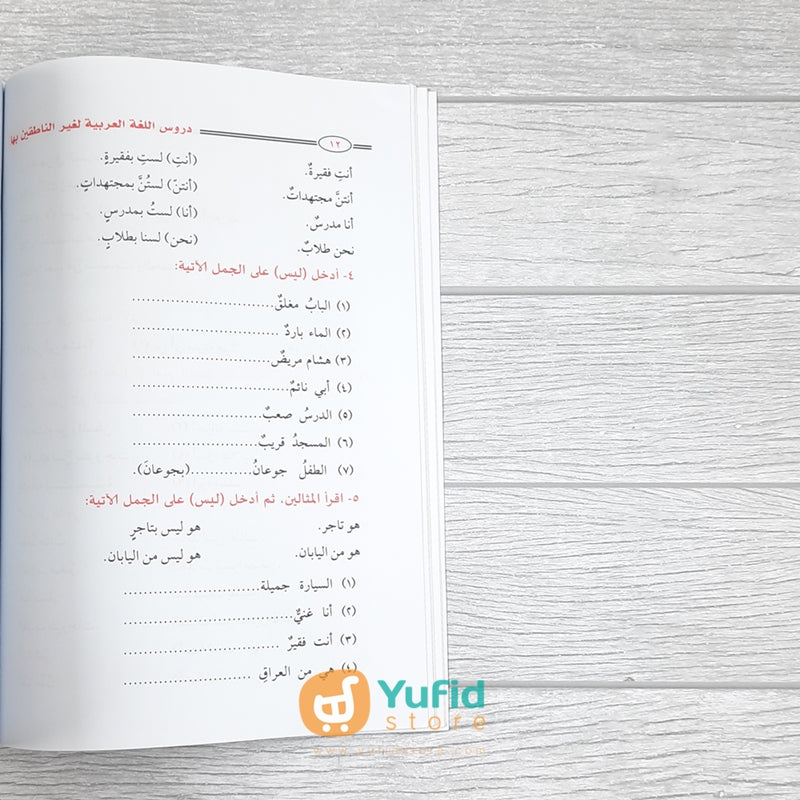 دروس اللغة العربية لغير الناطقين بها
١٢
أنتِ فقيرةٌ. (أنتِ) لستِ بفقيرةٍ.
أنتنَّ مجتهداتٌ. (أنتنّ) لستُنَّ بمجتهداتٍ.
أنا مدرسٌ. (أنا) لستُ بمدرسٍ.
نحن طلابٌ. (نحن) لسنا بطلابٍ.
٤- أدخل (ليس) على الجمل الآتية:
(١) البابُ مغلقٌ............................
(٢) الماء باردٌ ............................
(٣) هشام مريضٌ............................
(٤) أبي نائمٌ............................
(٥) الدرسُ صعبٌ............................
(٦) المسجدُ قريبٌ............................
(٧) الطفلُ جوعانُ............(بجوعانَ).
٥- اقرأ المثالين، ثم أدخل (ليس) على الجمل الآتية:
هو تاجر. هو ليس بتاجرٍ
هو من اليابان. هو ليس من اليابان.
(١) السيارة جميلة............................
(٢) أنا غنيٌّ............................
(٣) أنت فقيرٌ ............................
(٤) هي من العراقِ ............................
Yufid
store
www.yufidstore.com